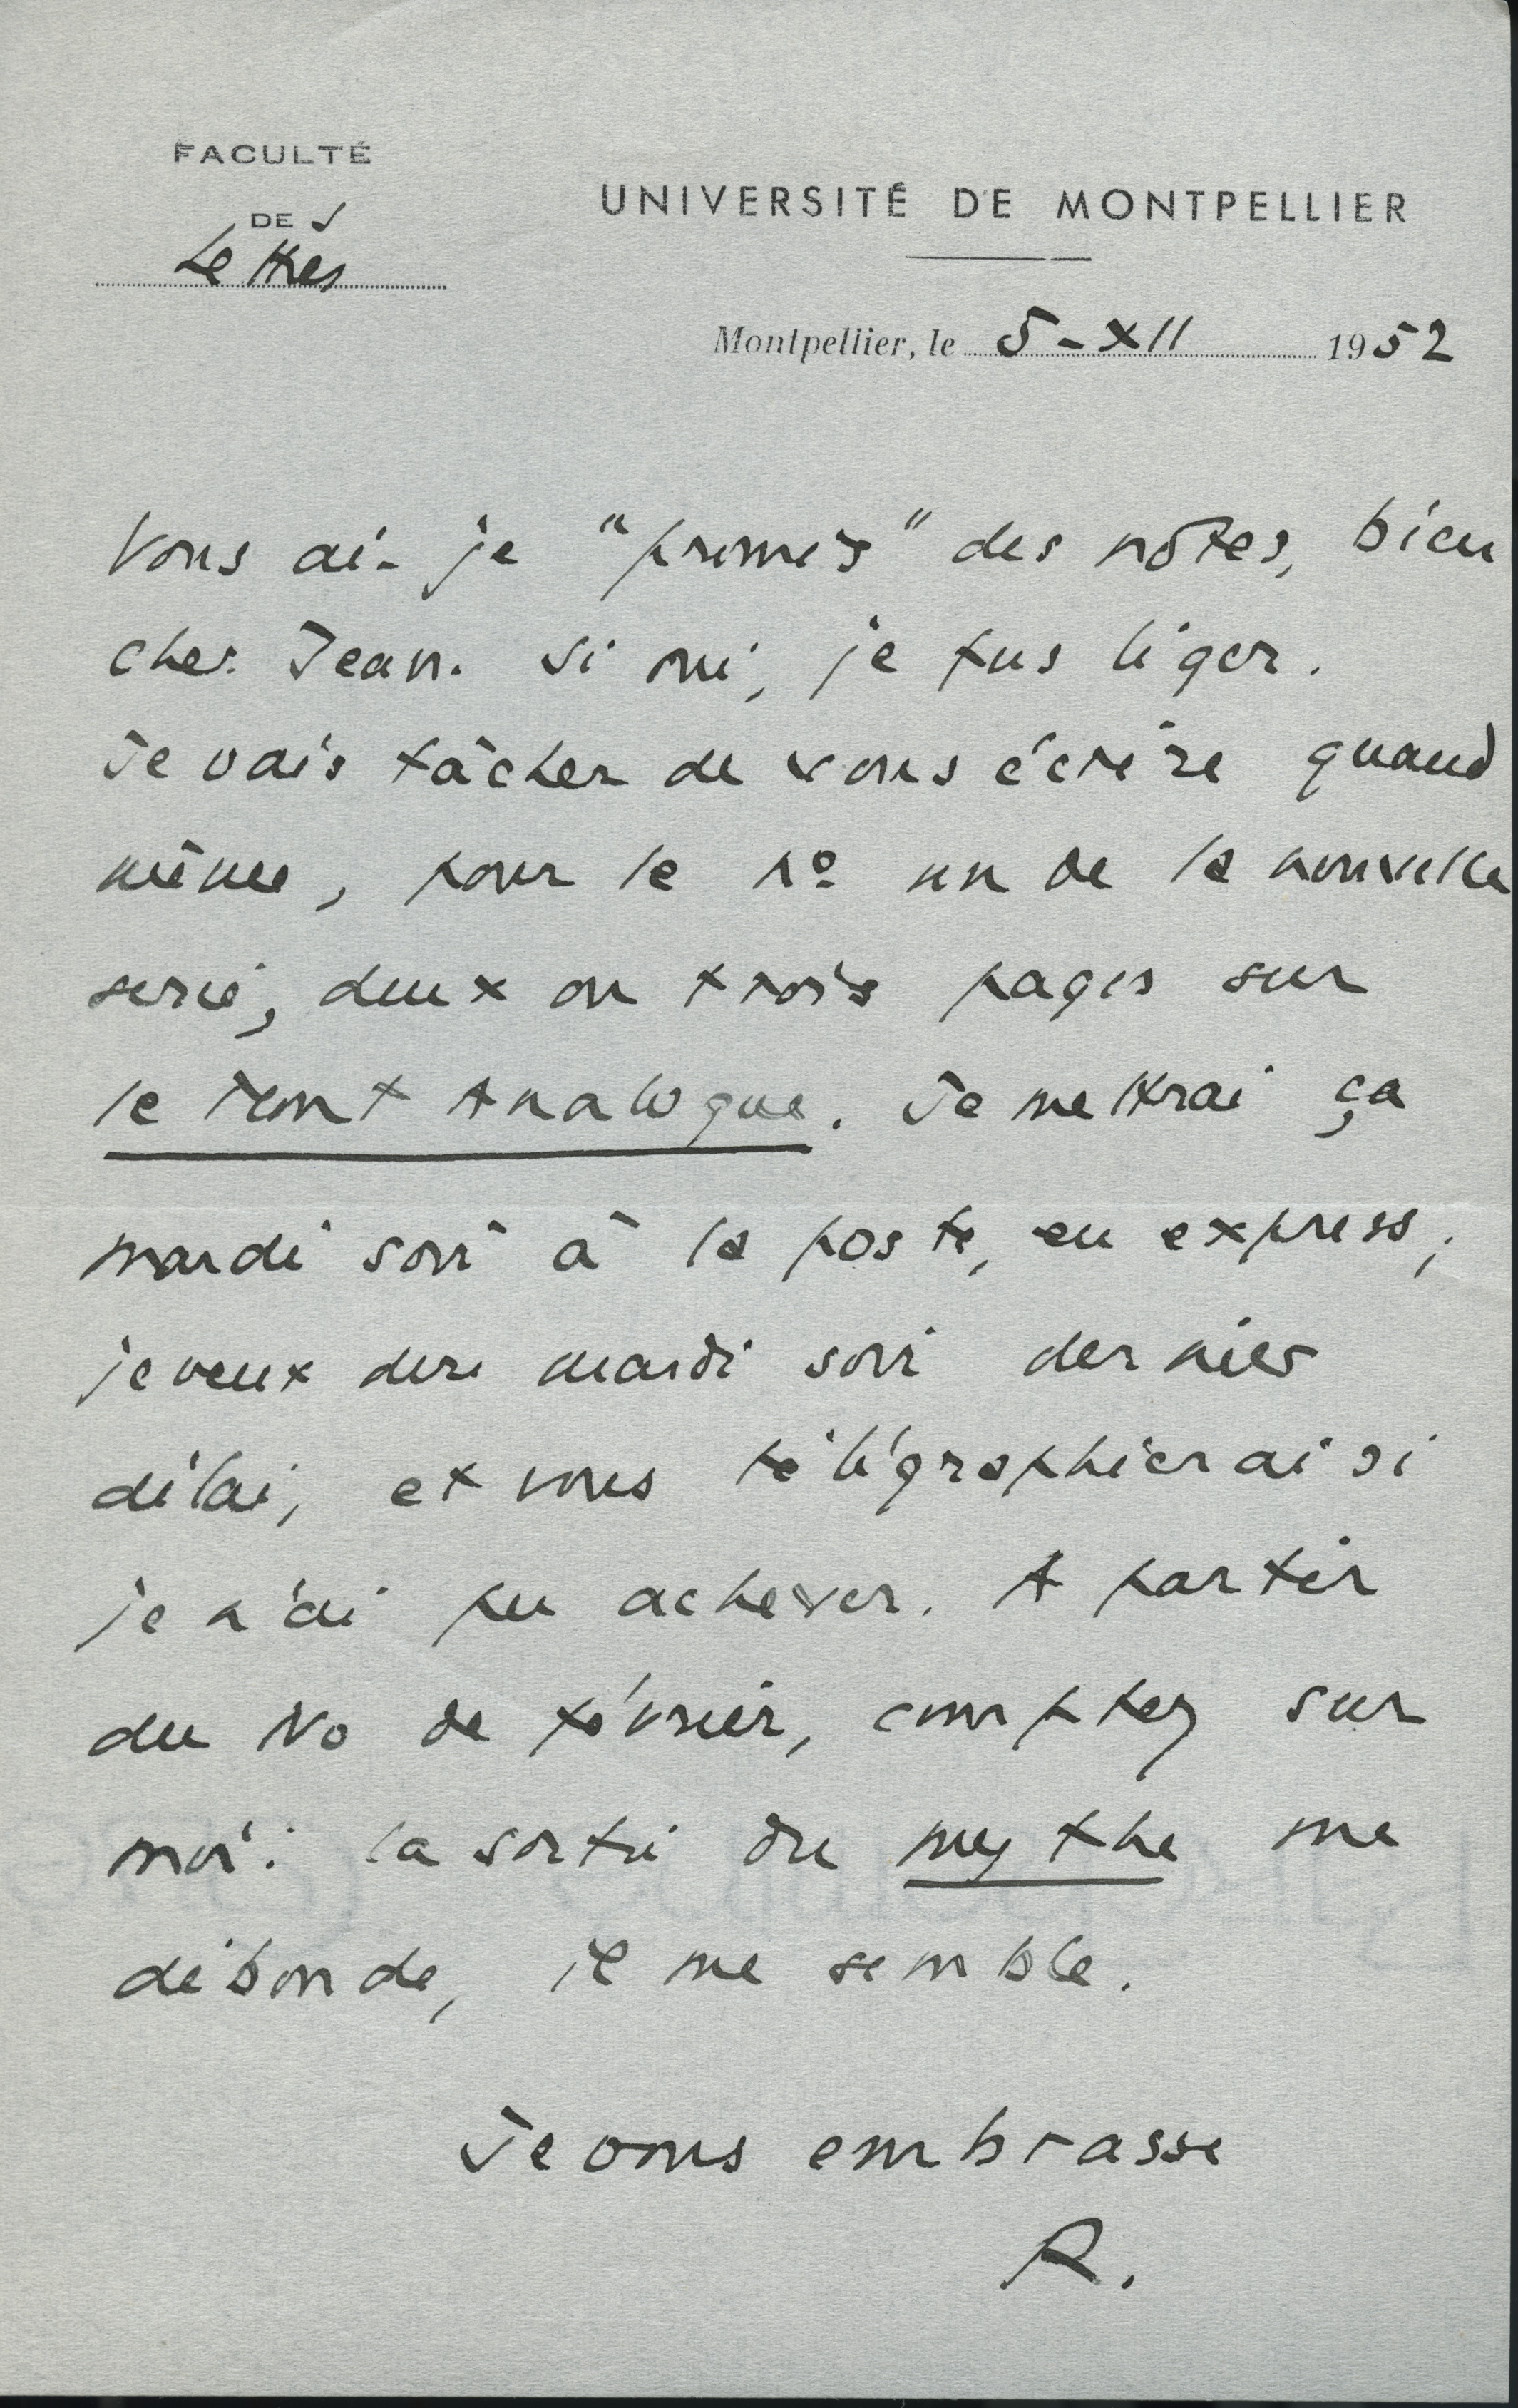 FACULTÉ
DES
Lettres
UNIVERSITÉ DE MONTPELLIER
Montpellier, le 5-XII 1952
Vous ai-je "promis" des notes, bien
cher Jean. Si oui, je fus léger.
Je vais tâcher de vous écrire quand
même, pour le no un de la nouvelle
série, deux ou trois pages sur
le Mont Analogue. Je mettrai ça
mardi soir à la poste, en express;
je veux dire mardi soir dernier
délai, et vous télégraphierai si
je n'ai pu achever. A partir
du No de février, comptez sur
moi: la sortie du mythe me
débonde, il me semble.
Je vous embrasse
R.